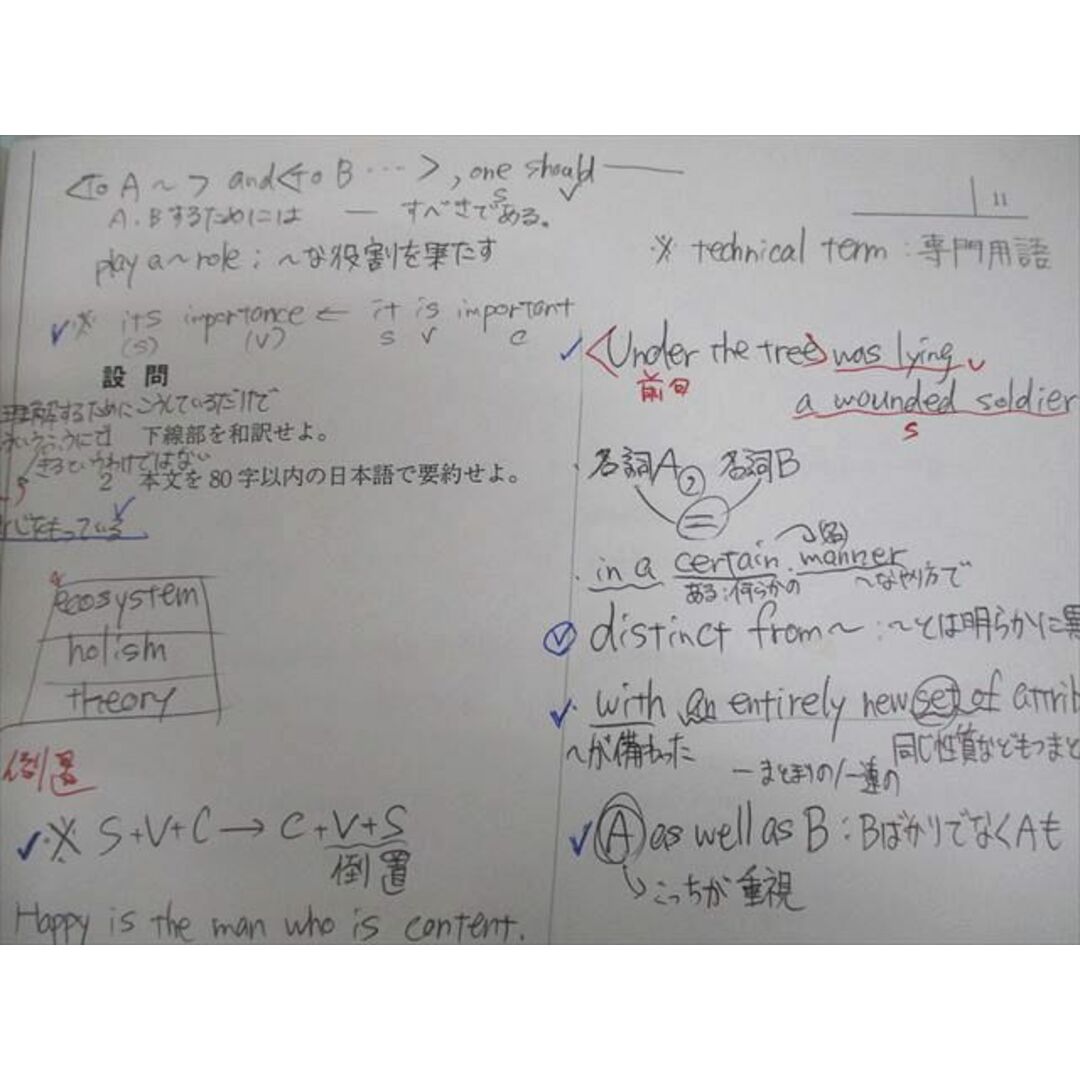 <To A ~> and <to B …>, one should ―
S V
A.Bするためには ― すべきである。
play a ~ role ; ~な役割を果たす
※ its importance ← it is important
(S) (V) S V C
設問
理解するためにこうしているだけで
1 下線部を和訳せよ。
きるというわけではない
2 本文を80字以内の日本語で要約せよ。
をもっている
ecosystem
holism
theory
倒置
※ S+V+C → C+V+S
倒置
Happy is the man who is content.
11
※ technical term : 専門用語
<Under the tree> was lying
前句 V
a wounded soldier
S
・名詞A, 名詞B
=
・in a certain manner
ある:何らかの ~なやり方で
distinct from~ : ~とは明らかに異
・with an entirely new set of attrib
~が備わった
同じ性質などもつまと
一まとまりの/一連の
A as well as B : BばかりでなくAも
こっちが重視